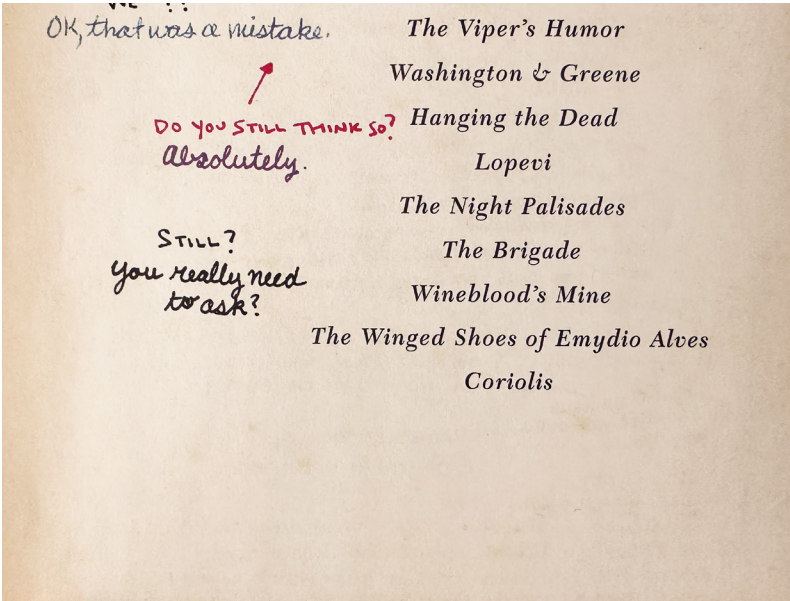 OK, that was a mistake.
DO YOU STILL THINK SO?
Absolutely.
STILL?
You really need
to ask?
The Viper's Humor
Washington & Greene
Hanging the Dead
Lopevi
The Night Palisades
The Brigade
Wineblood's Mine
The Winged Shoes of Emydio Alves
Coriolis